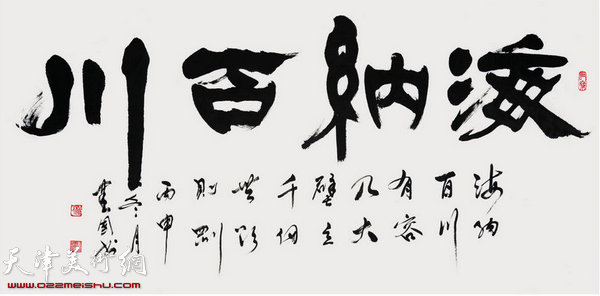 海納百川
海纳
百川
有容
乃大
壁立
千仞
無欲
則剛
丙申
冬月
天津美術網
www.022meishu.com